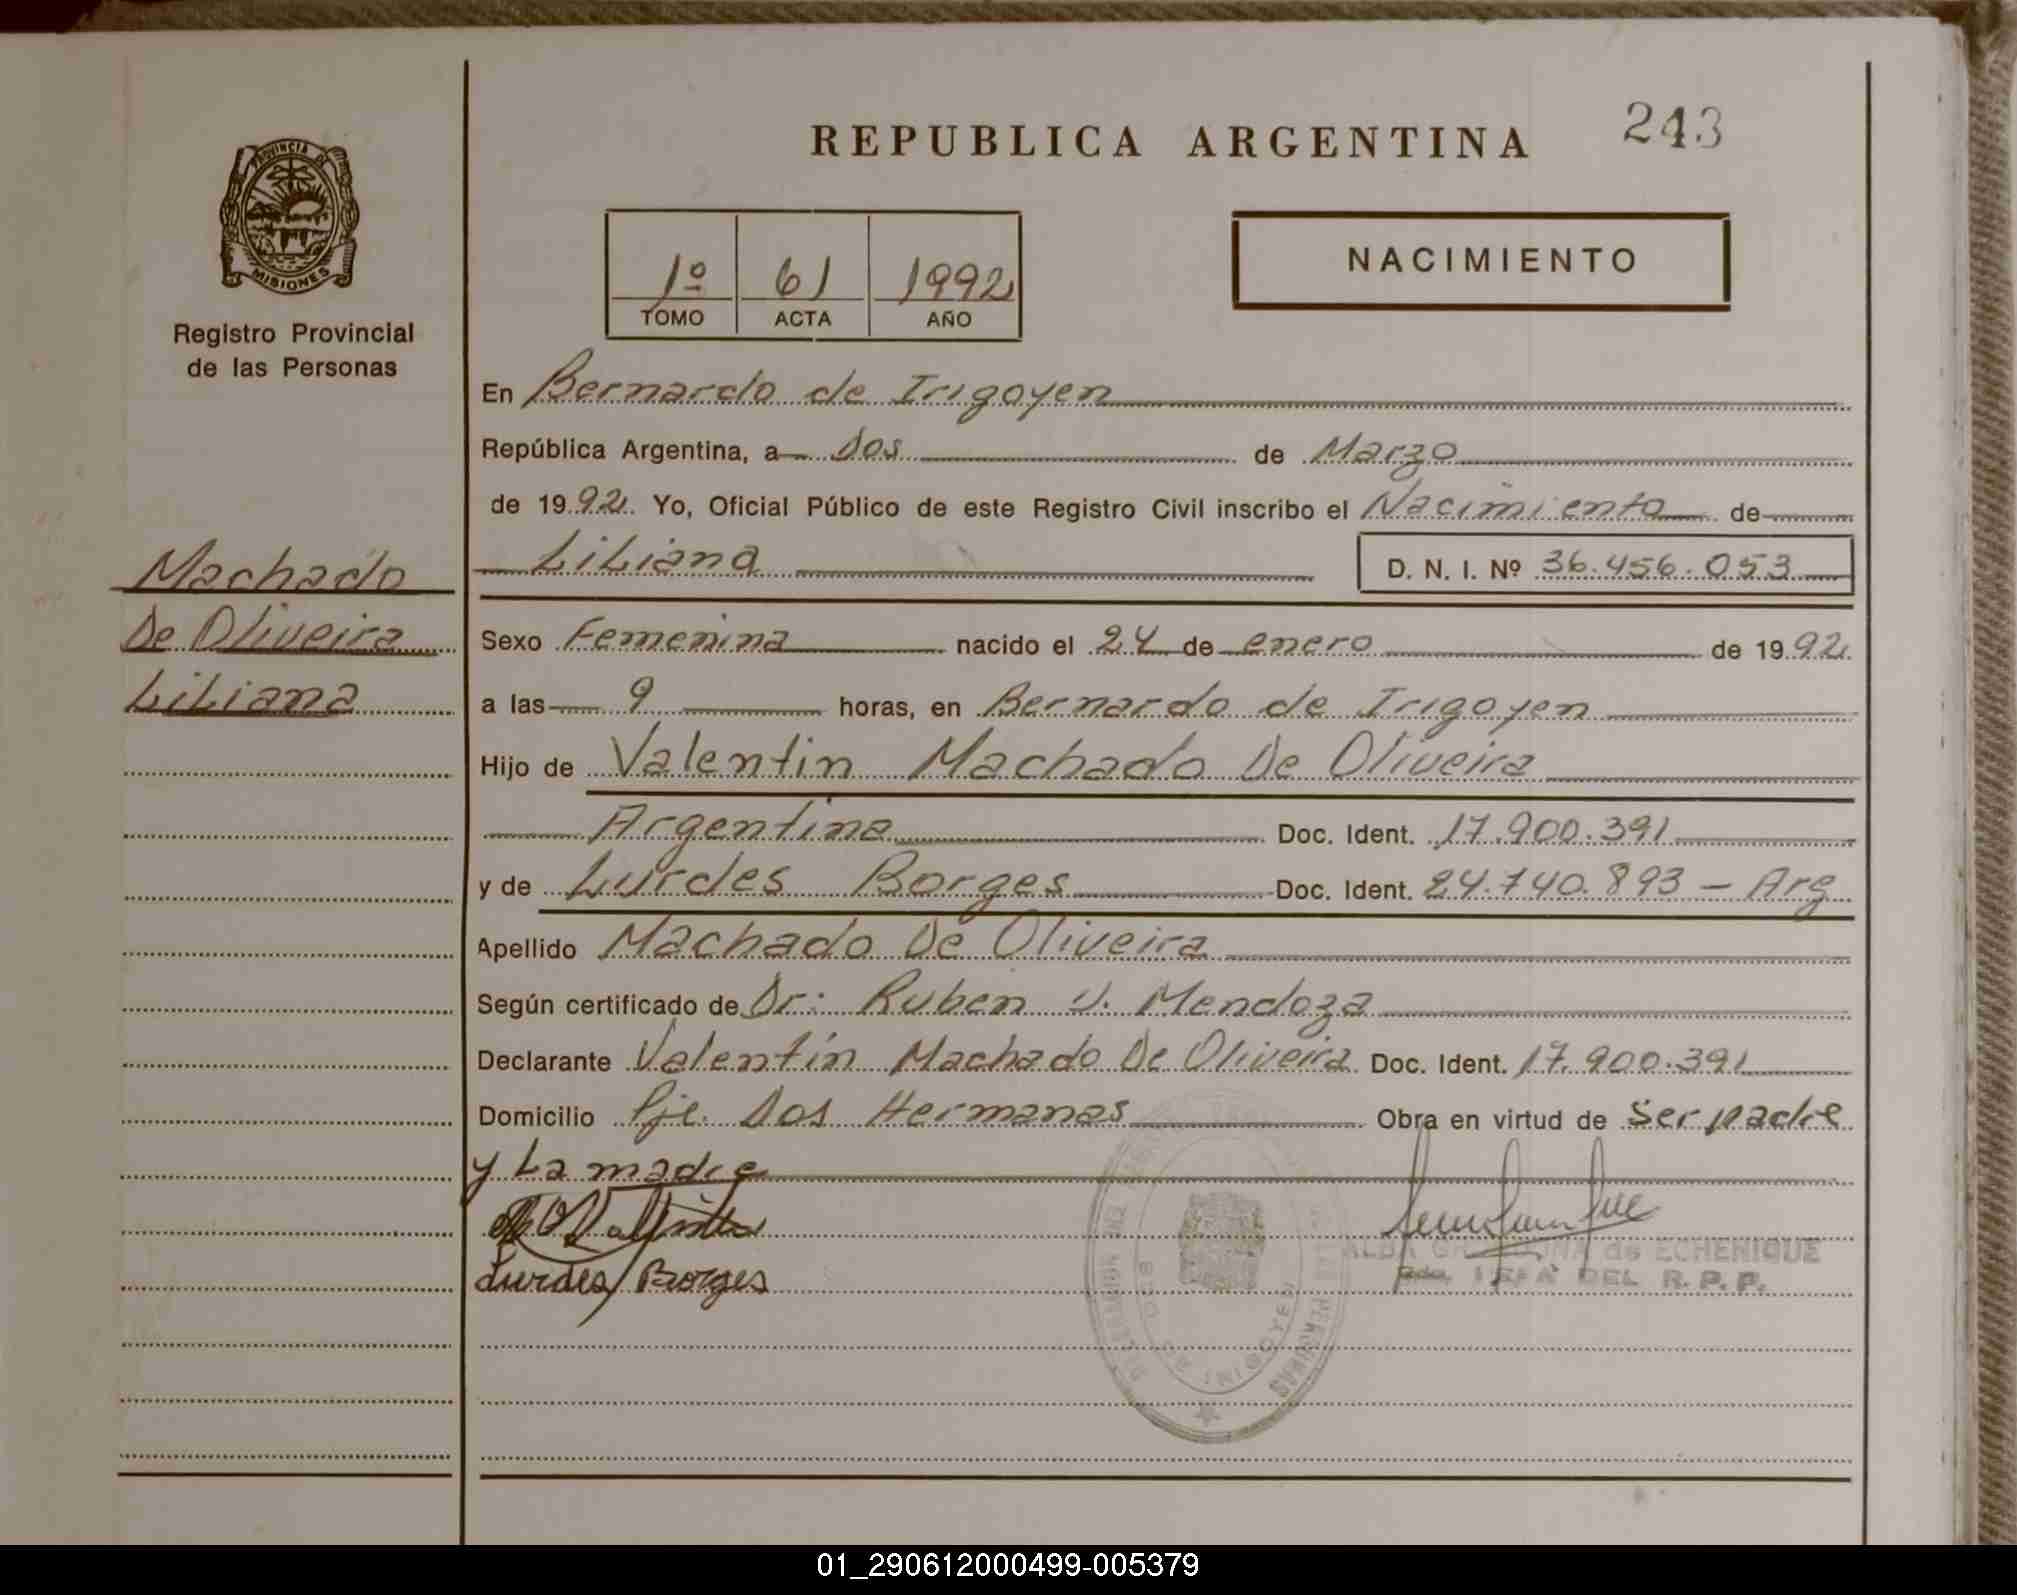 243
REPUBLICA ARGENTINA
PROVINCIA DE
MISIONES
Registro Provincial
de las Personas
1º 61 1992
TOMO ACTA AÑO
NACIMIENTO
En Bernardo de Irigoyen
República Argentina, a Dos de Marzo
de 1992. Yo, Oficial Público de este Registro Civil inscribo el Nacimiento de
Liliana D. N. I. Nº 36.456.053
Machado
De Oliveira
Liliana
Sexo Femenina nacido el 24 de enero de 1992
a las 9 horas, en Bernardo de Irigoyen
Hijo de Valentin Machado De Oliveira
Argentina Doc. Ident. 17.900.391
y de Lurdes Borges Doc. Ident. 24.740.893 - Arg
Apellido Machado De Oliveira
Según certificado de Dr: Ruben V. Mendoza
Declarante Valentín Machado De Oliveira Doc. Ident. 17.900.391
Domicilio Pje. Dos Hermanas Obra en virtud de Ser padre
y La madre
Lurdes Borges
ALBA de ECHENIQUE
DEL R. P. P.
PERSONAS
IRIGOYEN
01_290612000499-005379